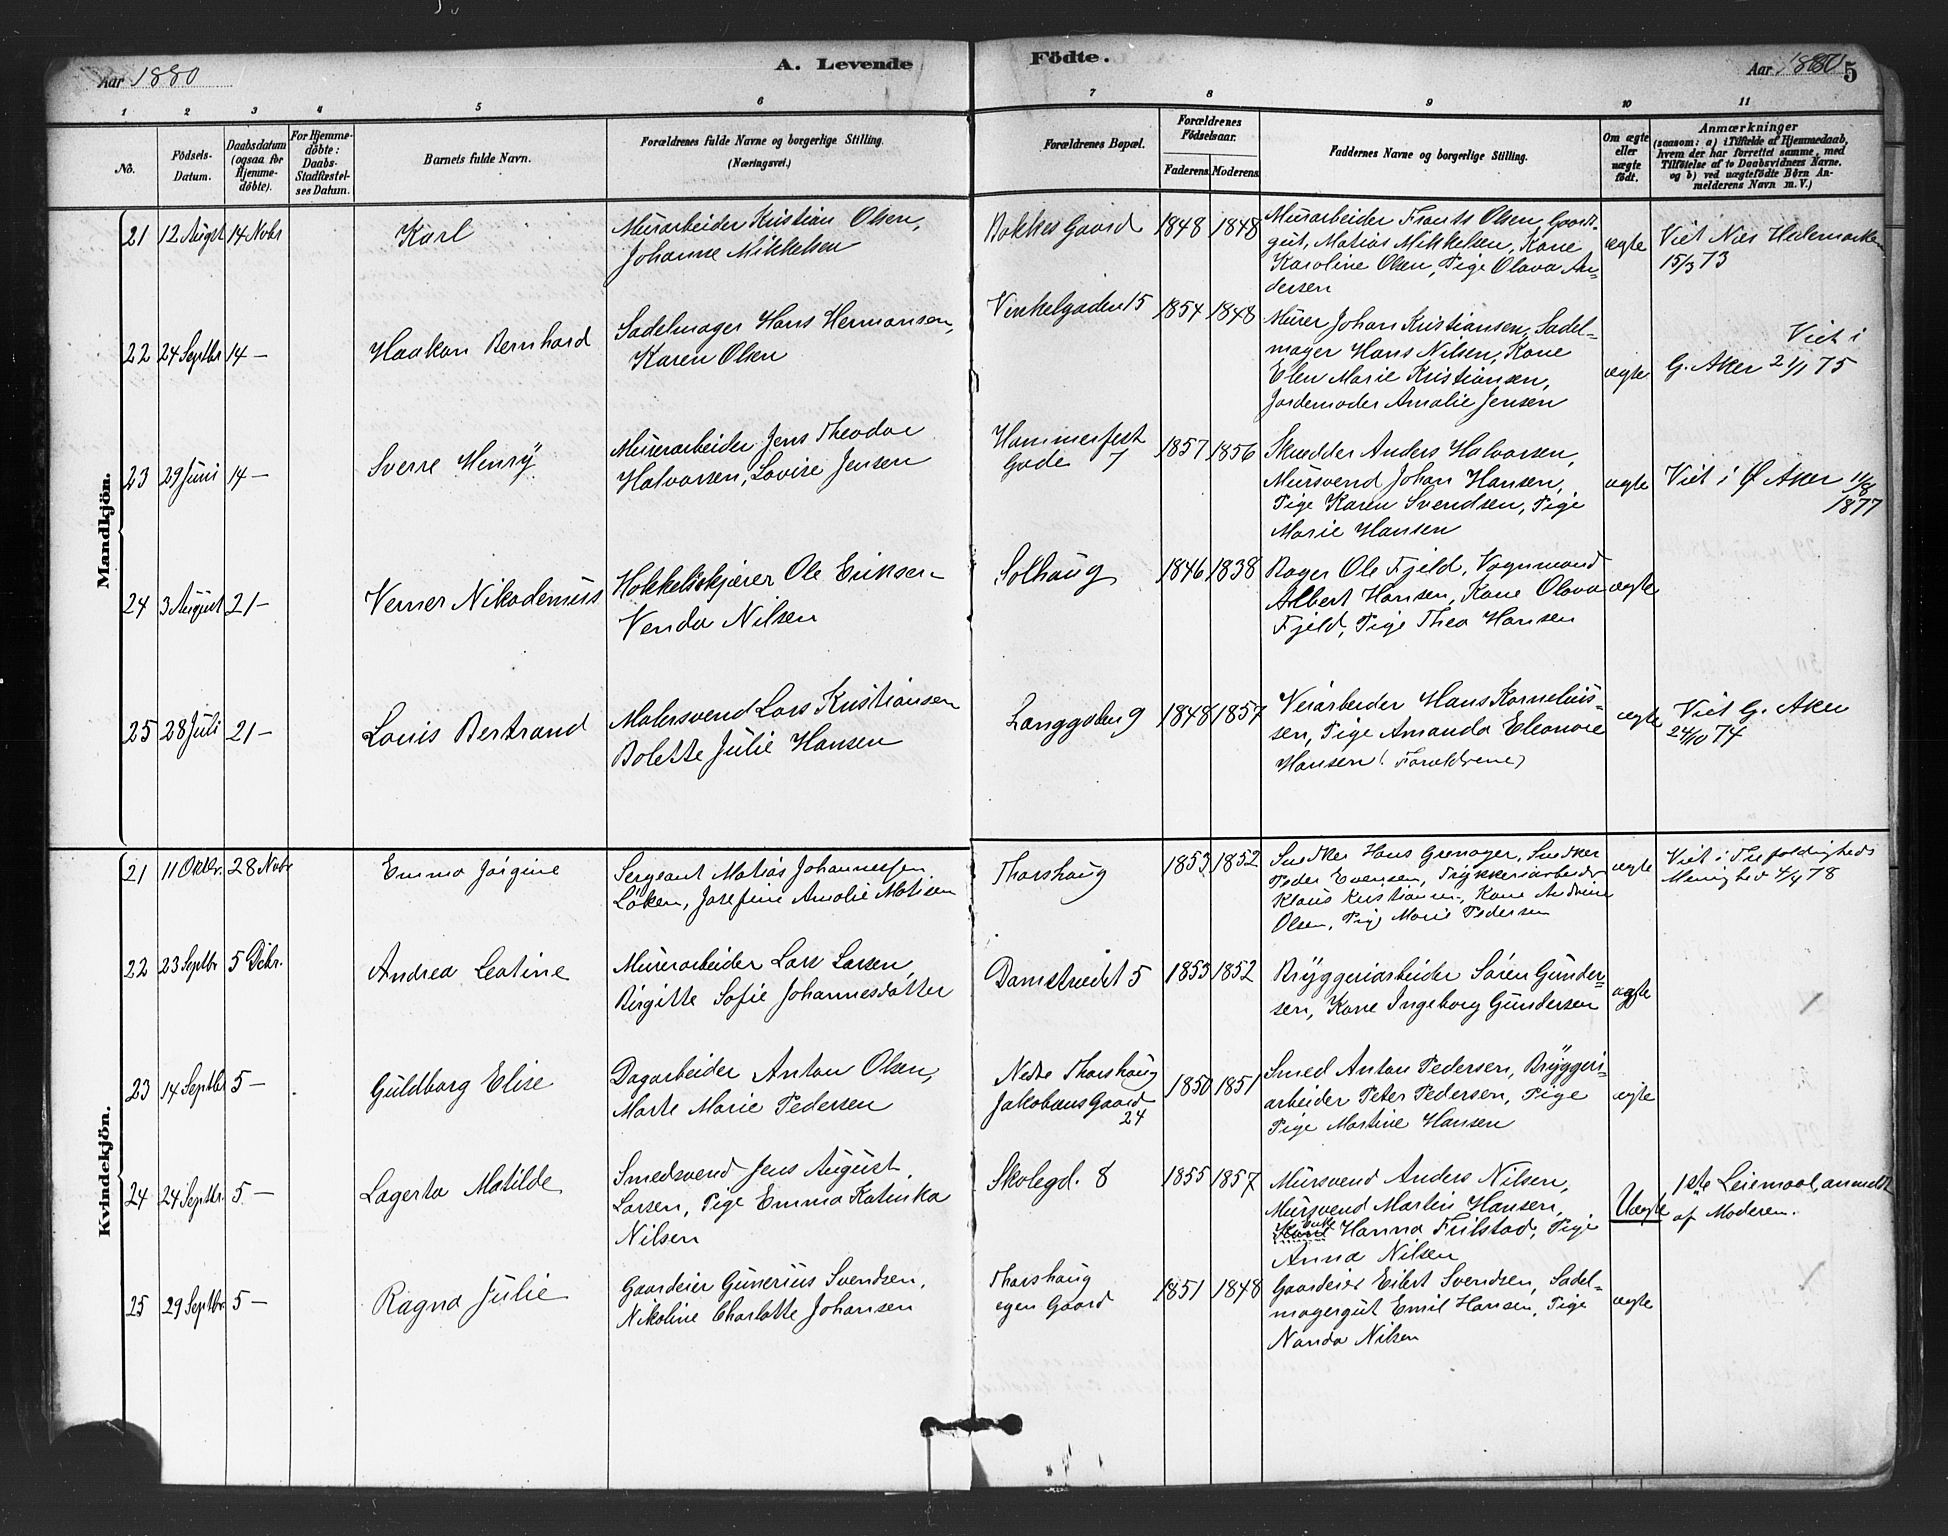 Aar 1880
A. Levende
Födte.
Aar 1880
5
1 2 3 4 5 6 7 8 9 10 11
No.
Födsels-Datum.
Daabsdatum (ogsaa for Hjemme-döbte).
For Hjemme-döbte: Daabs-Stadfæstel-ses Datum.
Barnets fulde Navn.
Forældrenes fulde Navne og borgerlige Stilling.
(Næringsvei.)
Forældrenes Bopæl.
Forældrenes Födselsaar.
Faderens Moderens
Faddernes Navne og borgerlige Stilling.
Om ægte eller uægte födt.
Anmærkninger
(saasom: a) i Tilfælde af Hjemmedaab, hvem der har forrettet samme, med Tilföielse af to Daabsvidners Navne. og b) ved uægtefödte Børn An-melderens Navn m. V.)
Mandkjön.
21 12 Augst 14 Novbr
Karl
Murarbeider Kristian Olsen,
Johanne Mikkelsen
Bakkes Gaard
1848 1848
Murarbeider Frants Olsen, Gaards-
gut, Matias Mikkelsen, Kone
Karoline Olsen, Pige Olava An-
dersen
ægte
Viet Næs Hedemarken
15/3 73
22 24 Septbr 14 –
Haakon Bernhard
Sadelmager Hans Hermansen,
Karen Olsen
Vinkelgaden 15
1854 1848
Murer Johan Kristiansen, Sadel-
mager Hans Nilsen, Kone
Elen Marie Kristiansen,
Jordemoder Amalie Jensen
ægte
Viet i
G. Aker 21/1 75
23 29 Juni 14 –
Sverre Henry
Murerarbeider Jens Theodor
Halvorsen, Lovise Jensen
Hammerfest
Gade 7
1857 1856
Skrædder Anders Halvorsen,
Mursvend Johan Hansen,
Pige Karen Svendsen, Pige
Marie Hansen
ægte
Viet i Ø Aker 11/8
1877
24 3 August 21 –
Verner Nikodemus
Hakkelsskjærer Ole Eriksen
Venda Nilsen
Solhaug
1846 1838
Bager Ole Fjeld, Vognmand
Albert Hansen, Kone Olava
Fjeld, Pige Thea Hansen
ægte
25 28 Juli 21 –
Louis Bertrand
Malersvend Lars Kristiansen
Bolette Julie Hansen
Langgaden 9
1848 1857
Veiarbeider Hans Kornelius-
sen, Pige Amanda Eleonore
Hansen (Forældrene)
ægte
Viet G. Aker
24/10 74
Kvindekjön.
21 11 Oktbr. 28 Novbr
Emma Jörgine
Sergeant Matias Johannessen
Løken, Josefine Amalie Matisen
Thorshaug
1853 1852
Snedker Hans Grenager, Snedker
Peder Evensen, Trykkeriarbeider
Klaus Kristiansen, Kone Andrine
Olsen, Pige Marie Pedersen
ægte
Viet i Trefoldigheds
Menighed 4/4 78
22 23 Septbr 5 Debr.
Andrea Leatine
Murerarbeider Lars Larsen,
Birgitte Sofie Johannesdatter
Damstredet 5
1853 1852
Bryggeriarbeider Søren Gunder-
sen, Kone Ingeborg Gundersen
ægte
23 14 Septbr 5 –
Guldborg Elise
Dagarbeider Anton Olsen,
Marte Marie Pedersen
Nedre Thorshaug
Jakobsens Gaard
24
1850 1851
Smed Anton Pedersen, Bryggeri-
arbeider Peter Pedersen, Pige
Pige Martine Hansen
ægte
24 24 Septbr. 5 –
Lagerta Matilde
Smedsvend Jens August
Larsen, Pige Emma Katinka
Nilsen
Skolegd. 8
1855 1857
Mursvend Anders Nilsen,
Mursvend Martin Hansen,
Enke Hanna Frilstad, Pige
Anna Nilsen
Uægte
1ste Leiemaal, anmeldt
af Moderen.
25 29 Septbr. 5 –
Ragna Julie
Gaardeier Gunerius Svendsen,
Nikoline Charlotte Johansen
Thorshaug
egen Gaard
1851 1848
Gaardeier Eibert Svendsen, Sadel-
magergut Emil Hansen, Pige
Nanda Nilsen
ægte